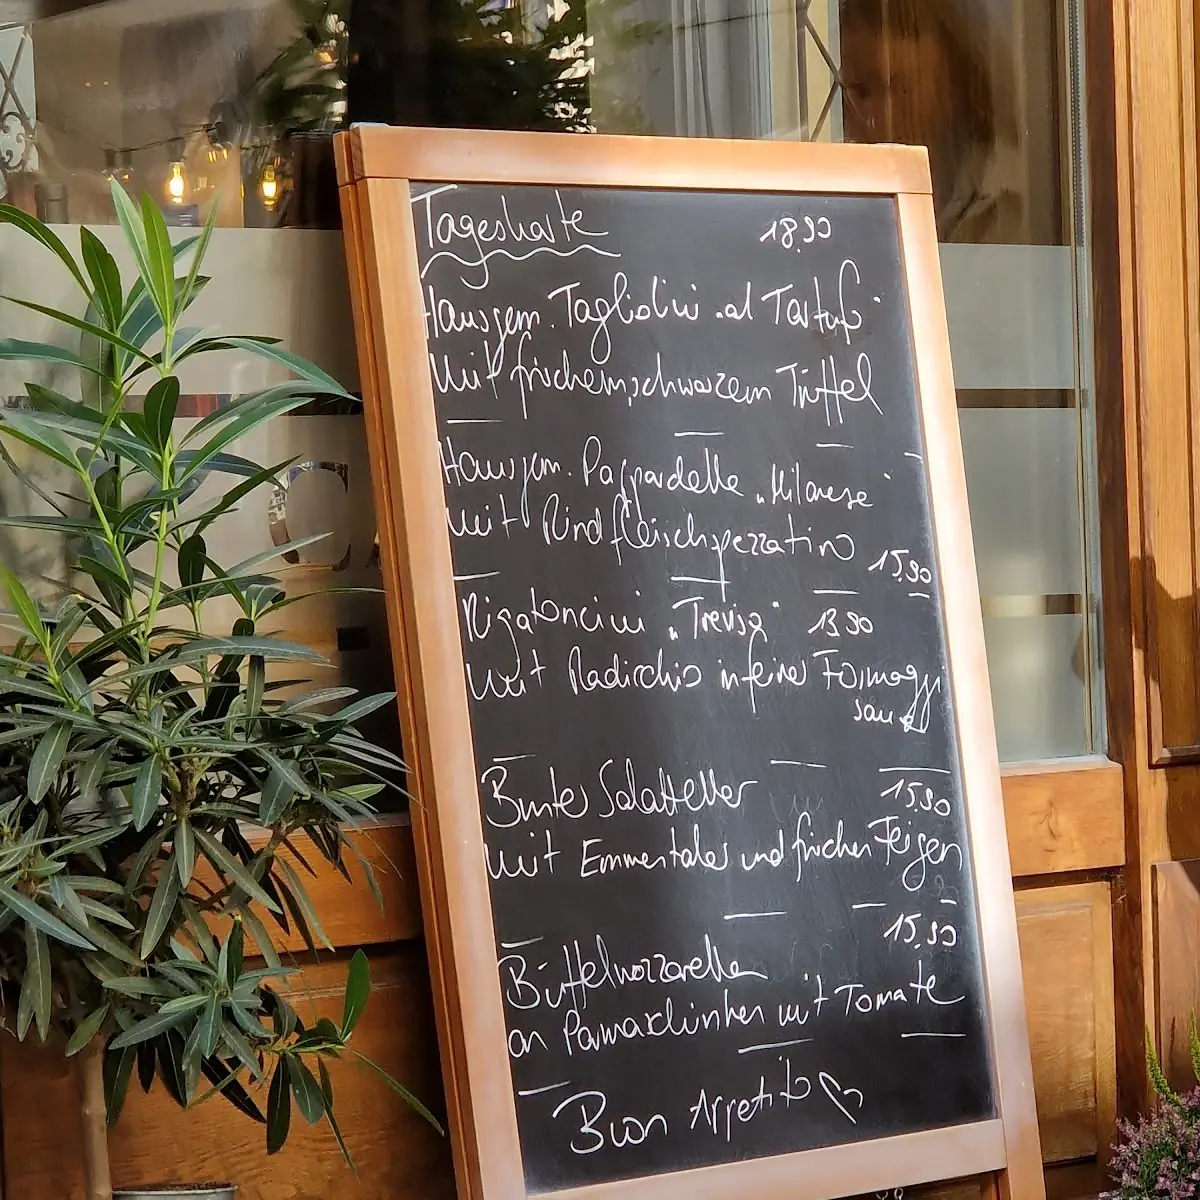 Tageskarte 18,90
Hausgem. Tagliolini "al Tartufo"
Mit frischem, schwarzem Trüffel
Hausgem. Pappardelle "Milanese"
mit Rindfleischspezzatino 15,90
Rigatoncini "Treviso" 13 90
mit Radicchio in feiner Formaggi
sauce
Bunter Salatteller 15,90
mit Emmentaler und frischen Feigen
15,90
Büffelmozzarella
an Parmaschinken mit Tomate
Buon Appetito